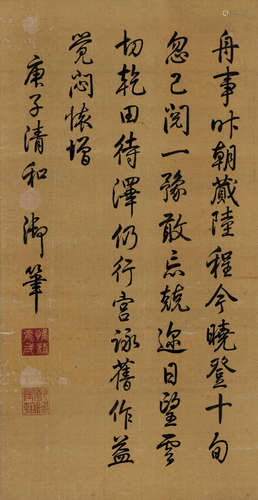 舟事昨朝蕆陸程今曉登十旬
忽已閱一豫敢忘兢邇日望雲
切乾田待澤仍行宫詠舊作益
覺悶懷增
庚子清和御筆